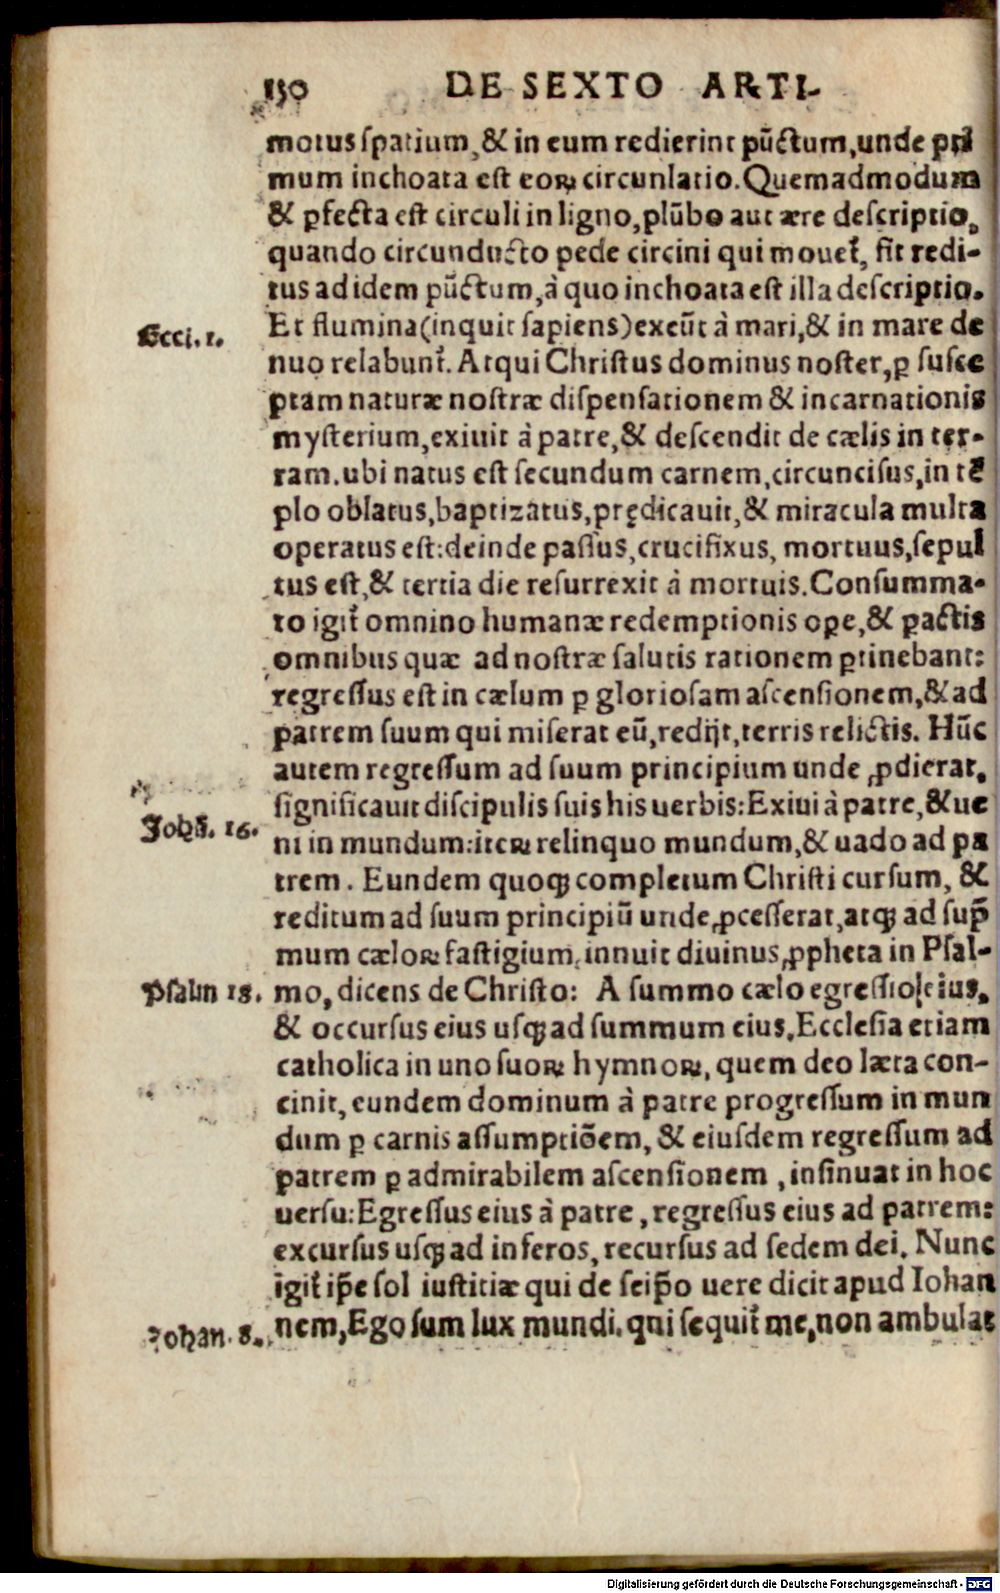 150 DE SEXTO ARTI-
motus ſpatium, & in eum redierint pũctum, unde pri
mum inchoata eſt eoꝝ circunlatio. Quemadmodum
& ꝑfecta eſt circuli in ligno, plũbo aut ære deſcriptio,
quando circunducto pede circini qui mouet᷑, fit redi-
tus ad idem pũctum, à quo inchoata eſt illa deſcriptio.
Eccl. 1. Et flumina (inquit ſapiens) exeũt à mari, & in mare de
nuo relabunt᷑. Atqui Chriſtus dominus noſter, ꝑ ſuſce
ptam naturæ noſtræ diſpenſationem & incarnationis
myſterium, exiuit à patre, & deſcendit de cælis in ter-
ram. ubi natus eſt ſecundum carnem, circunciſus, in tẽ
plo oblatus, baptizatus, prędicauit, & miracula multa
operatus eſt: deinde paſſus, crucifixus, mortuus, ſepul
tus eſt, & tertia die reſurrexit à mortuis. Conſumma-
to igit᷑ omnino humanæ redemptionis ope, & ꝑactis
omnibus quæ ad noſtræ ſalutis rationem ꝑtinebant:
regreſſus eſt in cælum ꝑ glorioſam aſcenſionem, & ad
patrem ſuum qui miſerat eũ, redijt, terris relictis. Hũc
autem regreſſum ad ſuum principium unde ꝓdierat,
ſignificauit diſcipulis ſuis his uerbis: Exiui à patre, & ue
Johã. 16. ni in mundum: iteꝝ relinquo mundum, & uado ad pa
trem. Eundem quoqꝫ completum Chriſti curſum, &
reditum ad ſuum principiũ unde ꝓceſſerat, atqꝫ ad ſup̃
mum cæloꝝ faſtigium, innuit diuinus ꝓpheta in Pſal-
Pſalm 18. mo, dicens de Chriſto: A ſummo cælo egreſſio eius,
& occurſus eius uſqꝫ ad ſummum eius. Eccleſia etiam
catholica in uno ſuoꝝ hymnoꝝ, quem deo læta con-
cinit, eundem dominum à patre progreſſum in mun
dum ꝑ carnis aſſumptiõem, & eiuſdem regreſſum ad
patrem ꝑ admirabilem aſcenſionem, inſinuat in hoc
uerſu: Egreſſus eius à patre, regreſſus eius ad patrem:
excurſus uſqꝫ ad inferos, recurſus ad ſedem dei. Nunc
igit᷑ ip̃e ſol iuſtitiæ qui de ſeip̃o uere dicit apud Iohan
Johan. 8. nem, Ego ſum lux mundi. qui ſequit᷑ me, non ambulat
Digitalisierung gefördert durch die Deutsche Forschungsgemeinschaft - DFG